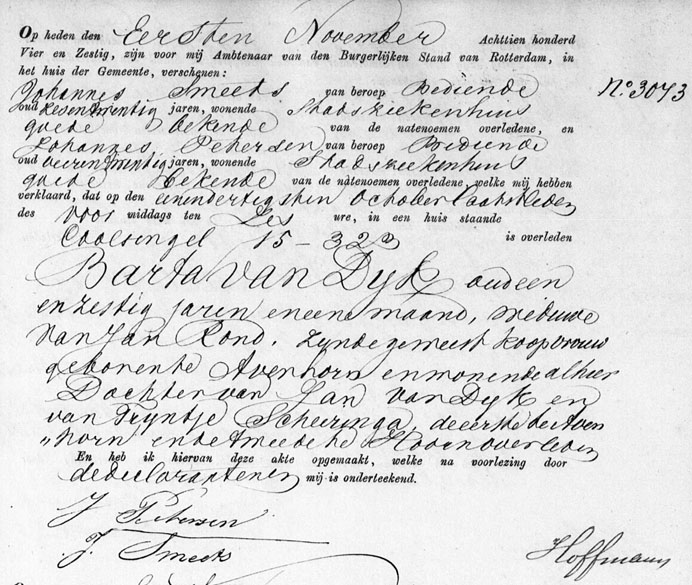 Op heden den Eersten November Achttien honderd
Vier en Zestig, zijn voor mij Ambtenaar van den Burgerlijken Stand van Rotterdam, in
het huis der Gemeente, verschenen:
Johannes Smeets van beroep Bediende
No. 3073
oud zesentwintig jaren, wonende Stadsziekenhuis
goede bekende van de natenoemen overledene, en
Johannes Petersen van beroep Bediende
oud vierentwintig jaren, wonende Stadsziekenhuis
goede bekende van de natenoemen overledene, welke mij hebben
verklaard, dat op den eenendertigsten October laatstleden
des voor middags ten Zes ure, in een huis staande
Coolsingel 15-323 is overleden
Barta van Dyk oud een
en zestig jaren en eene maand, weduwe
van Jan Rond, zynde geweest koopvrouw
geboren te Avenhorn en wonende alhier
Dochter van Jan van Dyk en
van Tryntje Scheringa, de eerste te Aven
"horn en de tweede te Hoorn overleden
En heb ik hiervan deze akte opgemaakt, welke na voorlezing door
de declaranten en mij is onderteekend.
J Petersen
J. Smeets
Hoffmann